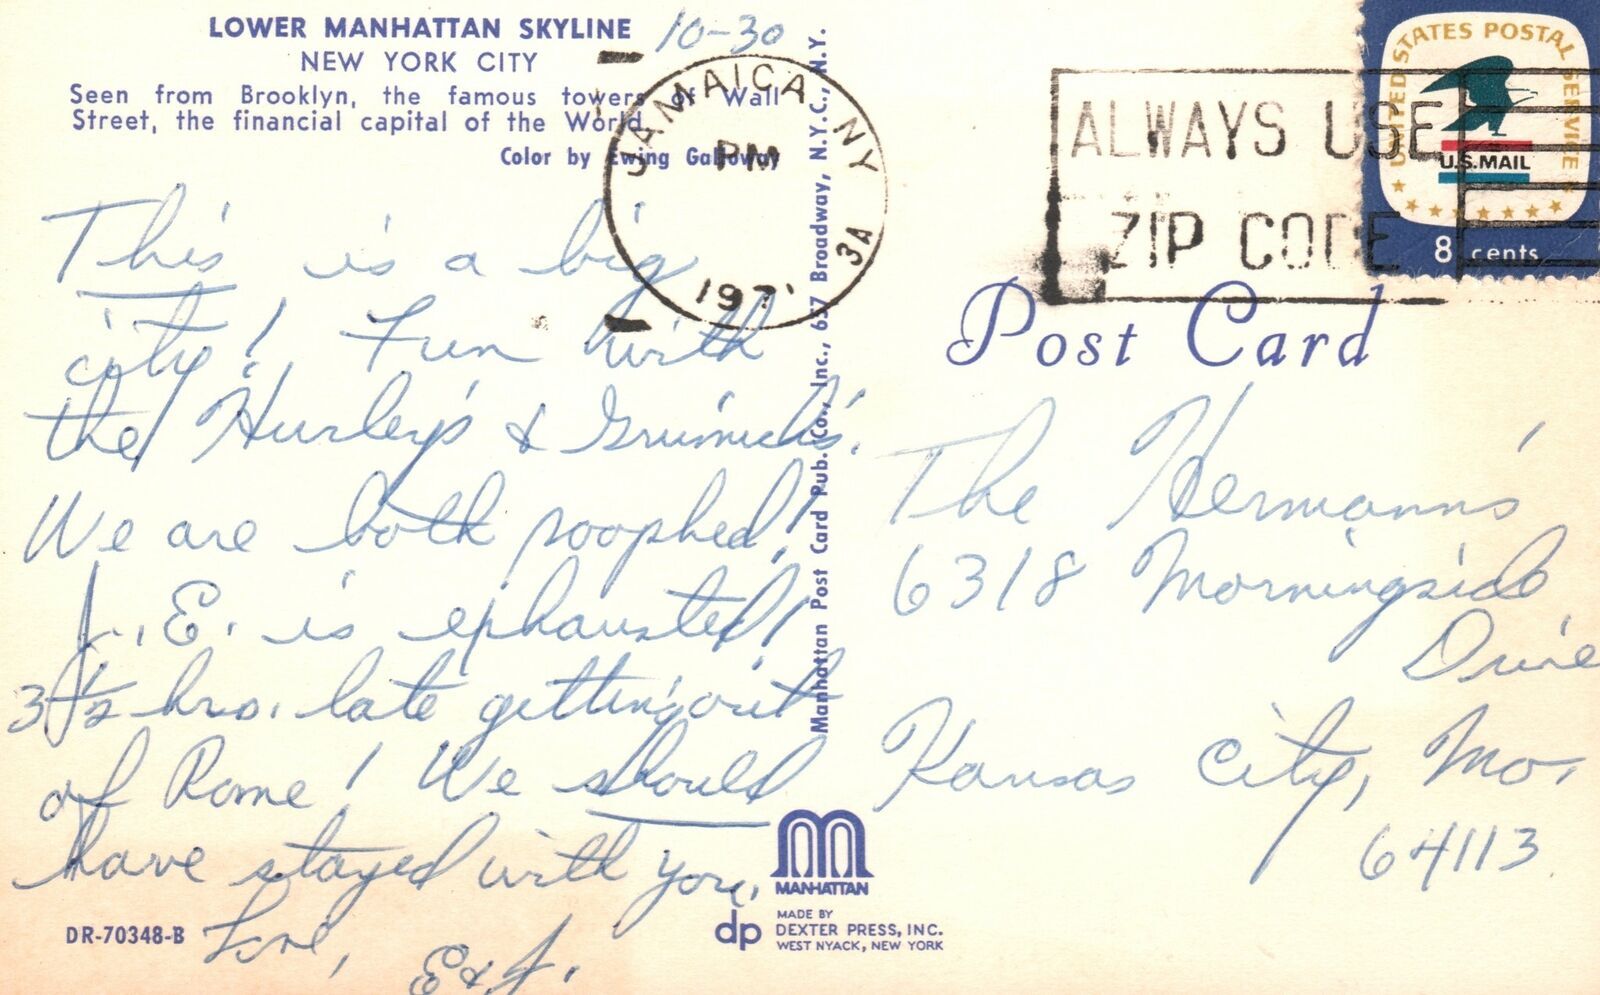 LOWER MANHATTAN SKYLINE
NEW YORK CITY
Seen from Brooklyn, the famous towers of Wall
Street, the financial capital of the World.
Color by Ewing Galloway
10-30
This is a big
city! Fun with
the Hurley's &
We are both poophed!
J. E. is exhausted!
3 1/2 hrs. late getting out
of Rome! We should
have stayed with you.
Love,
E & J.
DR-70348-B
JAMAICA NY
PM
1971
3A
Manhattan Post Card Pub. Co., Inc., 657 Broadway, N.Y.C., N.Y.
MANHATTAN
dp
MADE BY
DEXTER PRESS, INC.
WEST NYACK, NEW YORK
ALWAYS USE
ZIP CODE
UNITED STATES POSTAL SERVICE
U.S.MAIL
8 cents
Post Card
The Hermann's
6318 Morningside
Drive
Kansas City, Mo.
64113